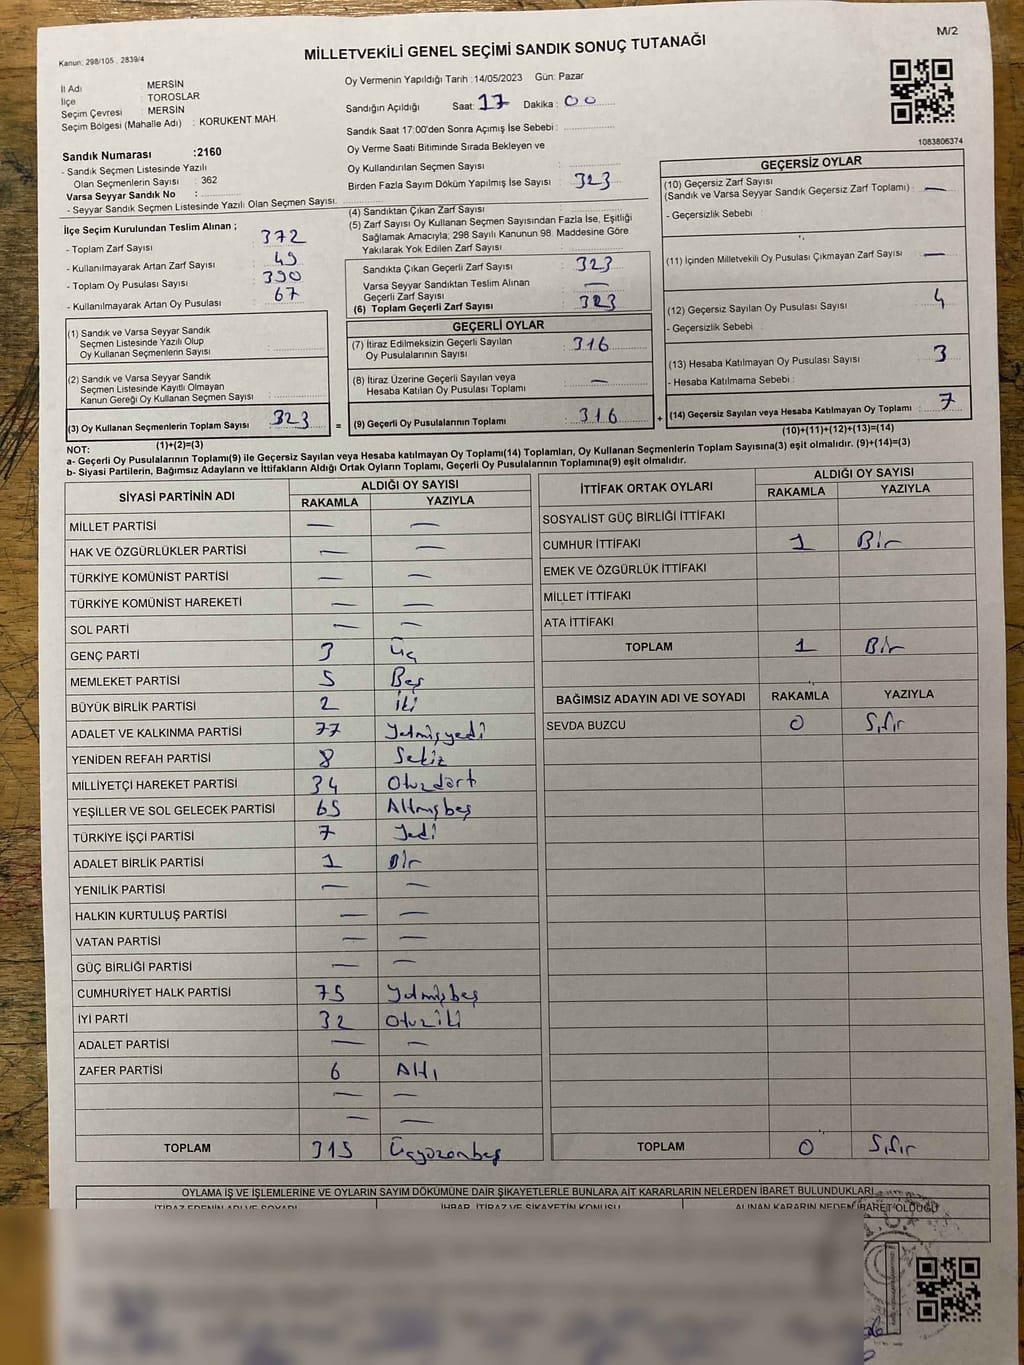 M/2
Kanun: 298/105 . 2839/4
MİLLETVEKİLİ GENEL SEÇİMİ SANDIK SONUÇ TUTANAĞI
İl Adı : MERSİN
İlçe : TOROSLAR
Seçim Çevresi : MERSİN
Seçim Bölgesi (Mahalle Adı) : KORUKENT MAH.
Oy Vermenin Yapıldığı Tarih :14/05/2023 Gün: Pazar
Sandığın Açıldığı Saat: 17 Dakika : 00
Sandık Saat 17:00'den Sonra Açımış İse Sebebi :
Oy Verme Saati Bitiminde Sırada Bekleyen ve
Oy Kullandırılan Seçmen Sayısı :
Birden Fazla Sayım Döküm Yapılmış İse Sayısı : 323
1083806374
Sandık Numarası :2160
- Sandık Seçmen Listesinde Yazılı
Olan Seçmenlerin Sayısı : 362
Varsa Seyyar Sandık No :
- Seyyar Sandık Seçmen Listesinde Yazılı Olan Seçmen Sayısı:
İlçe Seçim Kurulundan Teslim Alınan ;
- Toplam Zarf Sayısı : 372
- Kullanılmayarak Artan Zarf Sayısı : 49
- Toplam Oy Pusulası Sayısı : 390
- Kullanılmayarak Artan Oy Pusulası : 67
(1) Sandık ve Varsa Seyyar Sandık
Seçmen Listesinde Yazılı Olup
Oy Kullanan Seçmenlerin Sayısı :
(2) Sandık ve Varsa Seyyar Sandık
Seçmen Listesinde Kayıtlı Olmayan
Kanun Gereği Oy Kullanan Seçmen Sayısı :
(3) Oy Kullanan Seçmenlerin Toplam Sayısı : 323
(1)+(2)=(3)
(4) Sandıktan Çıkan Zarf Sayısı :
(5) Zarf Sayısı Oy Kullanan Seçmen Sayısından Fazla İse, Eşitliği
Sağlamak Amacıyla; 298 Sayılı Kanunun 98. Maddesine Göre
Yakılarak Yok Edilen Zarf Sayısı :
Sandıkta Çıkan Geçerli Zarf Sayısı : 323
Varsa Seyyar Sandıktan Teslim Alınan
Geçerli Zarf Sayısı : —
(6) Toplam Geçerli Zarf Sayısı : 323
GEÇERLİ OYLAR
(7) İtiraz Edilmeksizin Geçerli Sayılan
Oy Pusulalarının Sayısı : 316
(8) İtiraz Üzerine Geçerli Sayılan veya
Hesaba Katılan Oy Pusulası Toplamı : —
= (9) Geçerli Oy Pusulalarının Toplamı : 316
GEÇERSİZ OYLAR
(10) Geçersiz Zarf Sayısı
(Sandık ve Varsa Seyyar Sandık Geçersiz Zarf Toplamı) : —
- Geçersizlik Sebebi :
(11) İçinden Milletvekili Oy Pusulası Çıkmayan Zarf Sayısı : —
(12) Geçersiz Sayılan Oy Pusulası Sayısı : 4
- Geçersizlik Sebebi :
(13) Hesaba Katılmayan Oy Pusulası Sayısı : 3
- Hesaba Katılmama Sebebi :
+ (14) Geçersiz Sayılan veya Hesaba Katılmayan Oy Toplamı : 7
(10)+(11)+(12)+(13)=(14)
NOT:
a- Geçerli Oy Pusulalarının Toplamı(9) ile Geçersiz Sayılan veya Hesaba katılmayan Oy Toplamı(14) Toplamları, Oy Kullanan Seçmenlerin Toplam Sayısına(3) eşit olmalıdır. (9)+(14)=(3)
b- Siyasi Partilerin, Bağımsız Adayların ve İttifakların Aldığı Ortak Oyların Toplamı, Geçerli Oy Pusulalarının Toplamına(9) eşit olmalıdır.
SİYASİ PARTİNİN ADI ALDIĞI OY SAYISI
RAKAMLA YAZIYLA
MİLLET PARTİSİ — —
HAK VE ÖZGÜRLÜKLER PARTİSİ — —
TÜRKİYE KOMÜNİST PARTİSİ — —
TÜRKİYE KOMÜNİST HAREKETİ — —
SOL PARTİ — —
GENÇ PARTİ 3 Üç
MEMLEKET PARTİSİ 5 Beş
BÜYÜK BİRLİK PARTİSİ 2 iki
ADALET VE KALKINMA PARTİSİ 77 Yetmişyedi
YENİDEN REFAH PARTİSİ 8 Sekiz
MİLLİYETÇİ HAREKET PARTİSİ 34 Otuzdört
YEŞİLLER VE SOL GELECEK PARTİSİ 65 Altmışbeş
TÜRKİYE İŞÇİ PARTİSİ 7 Yedi
ADALET BİRLİK PARTİSİ 1 Bir
YENİLİK PARTİSİ — —
HALKIN KURTULUŞ PARTİSİ — —
VATAN PARTİSİ — —
GÜÇ BİRLİĞİ PARTİSİ — —
CUMHURİYET HALK PARTİSİ 75 Yetmişbeş
İYİ PARTİ 32 Otuziki
ADALET PARTİSİ — —
ZAFER PARTİSİ 6 Altı
— —
— —
TOPLAM 315 Üçyüzonbeş
İTTİFAK ORTAK OYLARI ALDIĞI OY SAYISI
RAKAMLA YAZIYLA
SOSYALİST GÜÇ BİRLİĞİ İTTİFAKI
CUMHUR İTTİFAKI 1 Bir
EMEK VE ÖZGÜRLÜK İTTİFAKI
MİLLET İTTİFAKI
ATA İTTİFAKI
TOPLAM 1 Bir
BAĞIMSIZ ADAYIN ADI VE SOYADI RAKAMLA YAZIYLA
SEVDA BUZCU 0 Sıfır
TOPLAM 0 Sıfır
OYLAMA İŞ VE İŞLEMLERİNE VE OYLARIN SAYIM DÖKÜMÜNE DAİR ŞİKAYETLERLE BUNLARA AİT KARARLARIN NELERDEN İBARET BULUNDUKLARI
İTİRAZ EDENİN ADI VE SOYADI İHBAR, İTİRAZ VE ŞİKAYETİN KONUSU ALINAN KARARIN NEDEN İBARET OLDUĞU